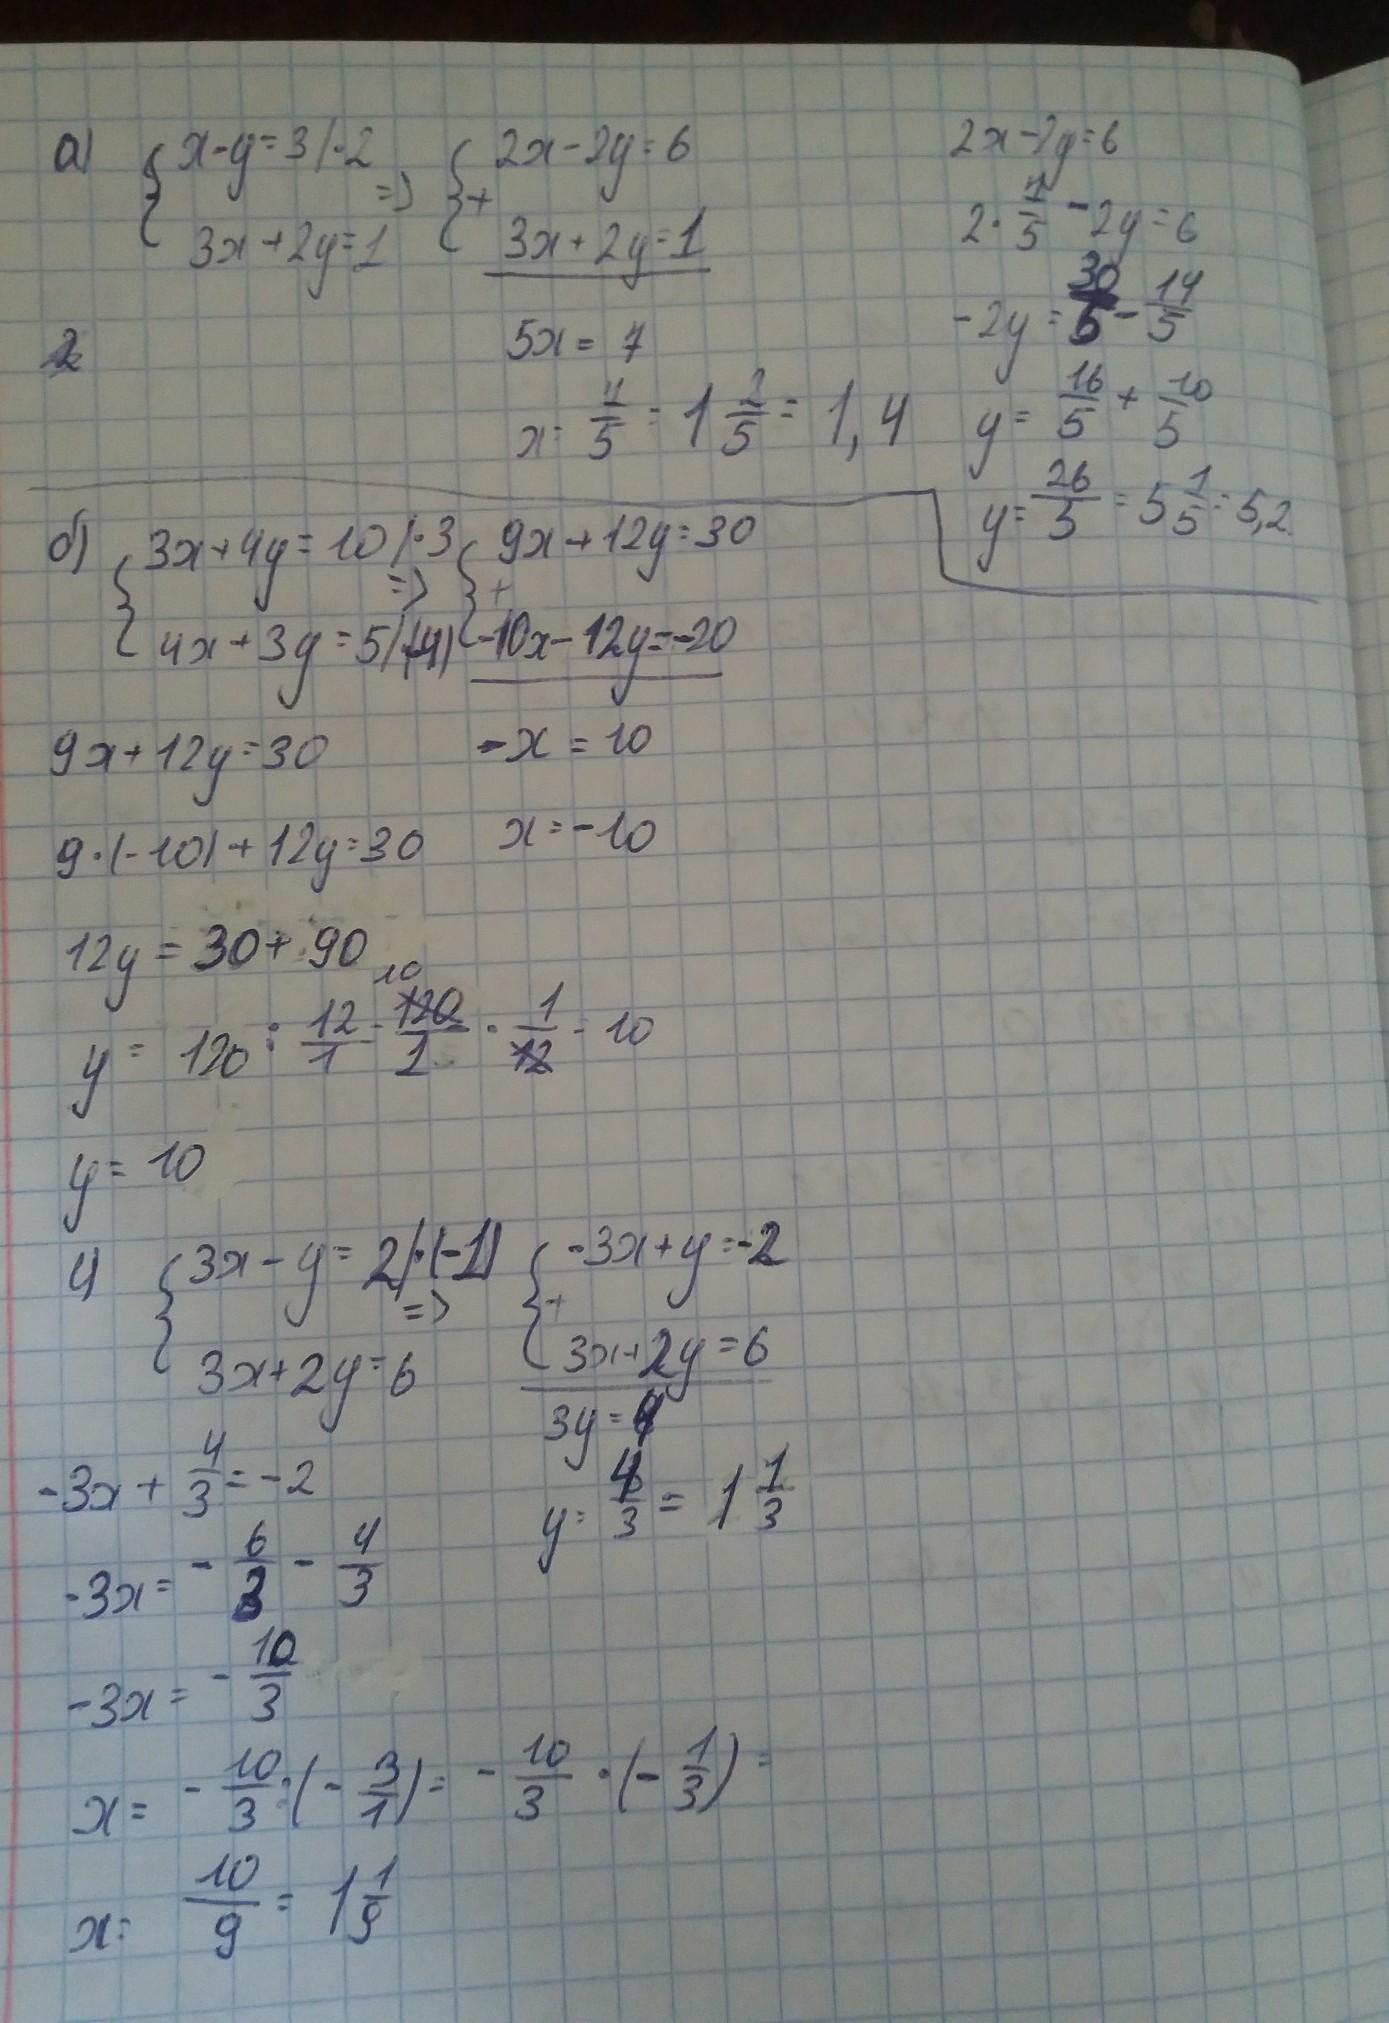 а) { x-y=3 |·2 => { 2x-2y=6
3x+2y=1 + 3x+2y=1
5x = 7
x = 7/5 = 1 2/5 = 1,4
2x-2y=6
2· 7/5 - 2y=6
-2y = 30/5 - 14/5
y = 16/5 + 10/5
y = 26/5 = 5 1/5 = 5,2
б) { 3x+4y=10 |·3 => { 9x+12y=30
4x+3y=5 |(-4) + -10x-12y=-20
-x = 10
x = -10
9x+12y=30
9·(-10)+12y=30
12y = 30+90
y = 120 : 12/1 = 120/1 · 1/12 = 10
10
y = 10
4) { 3x-y=2 |·(-1) => { -3x+y=-2
3x+2y=6 + 3x+2y=6
3y=4
y = 4/3 = 1 1/3
-3x + 4/3 = -2
-3x = - 6/3 - 4/3
-3x = - 10/3
x = - 10/3 : (- 3/1) = - 10/3 · (- 1/3) =
x = 10/9 = 1 1/9